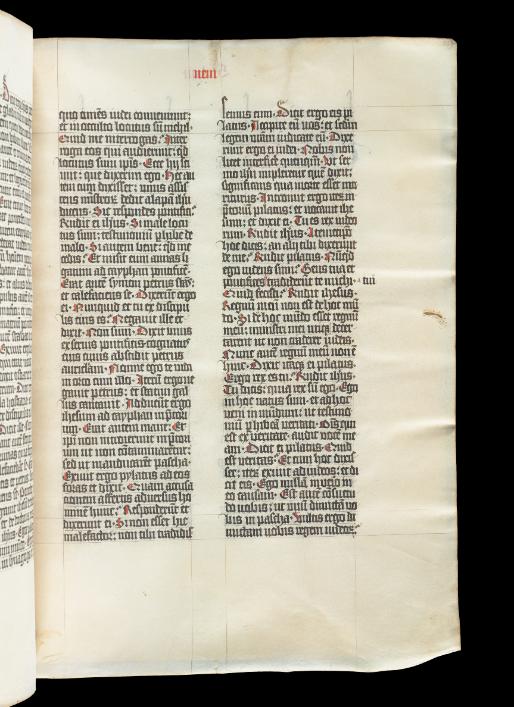 nem
quo om̄es iudei conueniunt:
et in occulto locutus sū nichil.
Quid me interrogas? Inter
roga eos qui audierunt: qd
locutus sum ip̄is. Ecce hij sci
unt: que dixerim ego. Hec au
tem cum dixisset: unus assis
tens ministroꝝ dedit alapā ihu
dicens. Sic respondes pontifici?
Rn̄dit ei ihūs. Si male locu
tus sum: testimoniū phibe de
malo. Si autem bene: qd me
cedis? Et misit eum annas li
gatum ad cayphan pontificē.
Erat autē symon petrus stās
et calefaciens se. Dixerūt ergo
ei. Nunquid et tu ex discipu
lis eius es? Negauit ille et
dixit. Non sum. Dixit unus
ex seruis pontificis cognatus
eius cuius abscidit petrus
auriculam. Nonne ego te uidi
in orto cum illo? Iterū ergo ne
gauit petrus: et statim gal
lus cantauit. Adducūt ergo
ihesum ad caypham in p̄tori
um. Erat autem mane. Et
ip̄i non introierunt in p̄tori
um ut non cōtaminarentur:
sed ut manducarēt pascha.
Exiuit ergo pylatus ad eos
foras et dixit. Quam accusa
tionem affertis aduersus ho
minē hunc? Responderūt et
dixerunt ei. Si non esset hic
malefactor: non tibi tradidis
semus eum. Dicit ergo eis pi
latus. Accipite eū uos: et scd̄m
legem ur̄am iudicate eū. Dixe
runt ergo ei iudei. Nobis non
licet interficē quenquā. Ut ser
mo ihu impleretur quē dixit:
significans qua morte esset mo
riturus. Introiuit ergo iterū in
p̄toriū pilatus: et uocauit ihe
sum: et dixit ei. Tu es rex iudeo
rum. Rn̄dit ihus. A temetip̄o
hoc dicis: an alij tibi dixerunt
de me? Rn̄dit pilatus. Nūqd
ego iudeus sum? Gens tua et
pontifices tradiderūt te michi. tui
Quid fecisti? Rn̄dit ihesus.
Regnū meū non est de hoc mū
do. Si de hoc mūdo esset regnū
meū: ministri mei utiqꝫ decer
tarent ut non traderer iudeis.
Nunc autē regnū meū non ē
hinc. Dixit itaqꝫ ei pilatus.
Ergo rex es tu? Rn̄dit ihus.
Tu dicis: quia rex sū ego. Ego
in hoc natus sum: et ad hoc
ueni in mundum: ut testimo
niū phibeā ueritati. Om̄is qui
est ex ueritate: audit uocē me
am. Dicit ei pilatus. Quid
est ueritas? Et cum hoc dixis
set: iterū exiuit ad iudeos: et di
cit eis. Ego nullā inuenio in
eo causam. Est autē cōsuetu
do uobis: ut unū dimittā uo
bis in pascha. Vultis ergo di
mittam uobis regem iudeoꝝ?